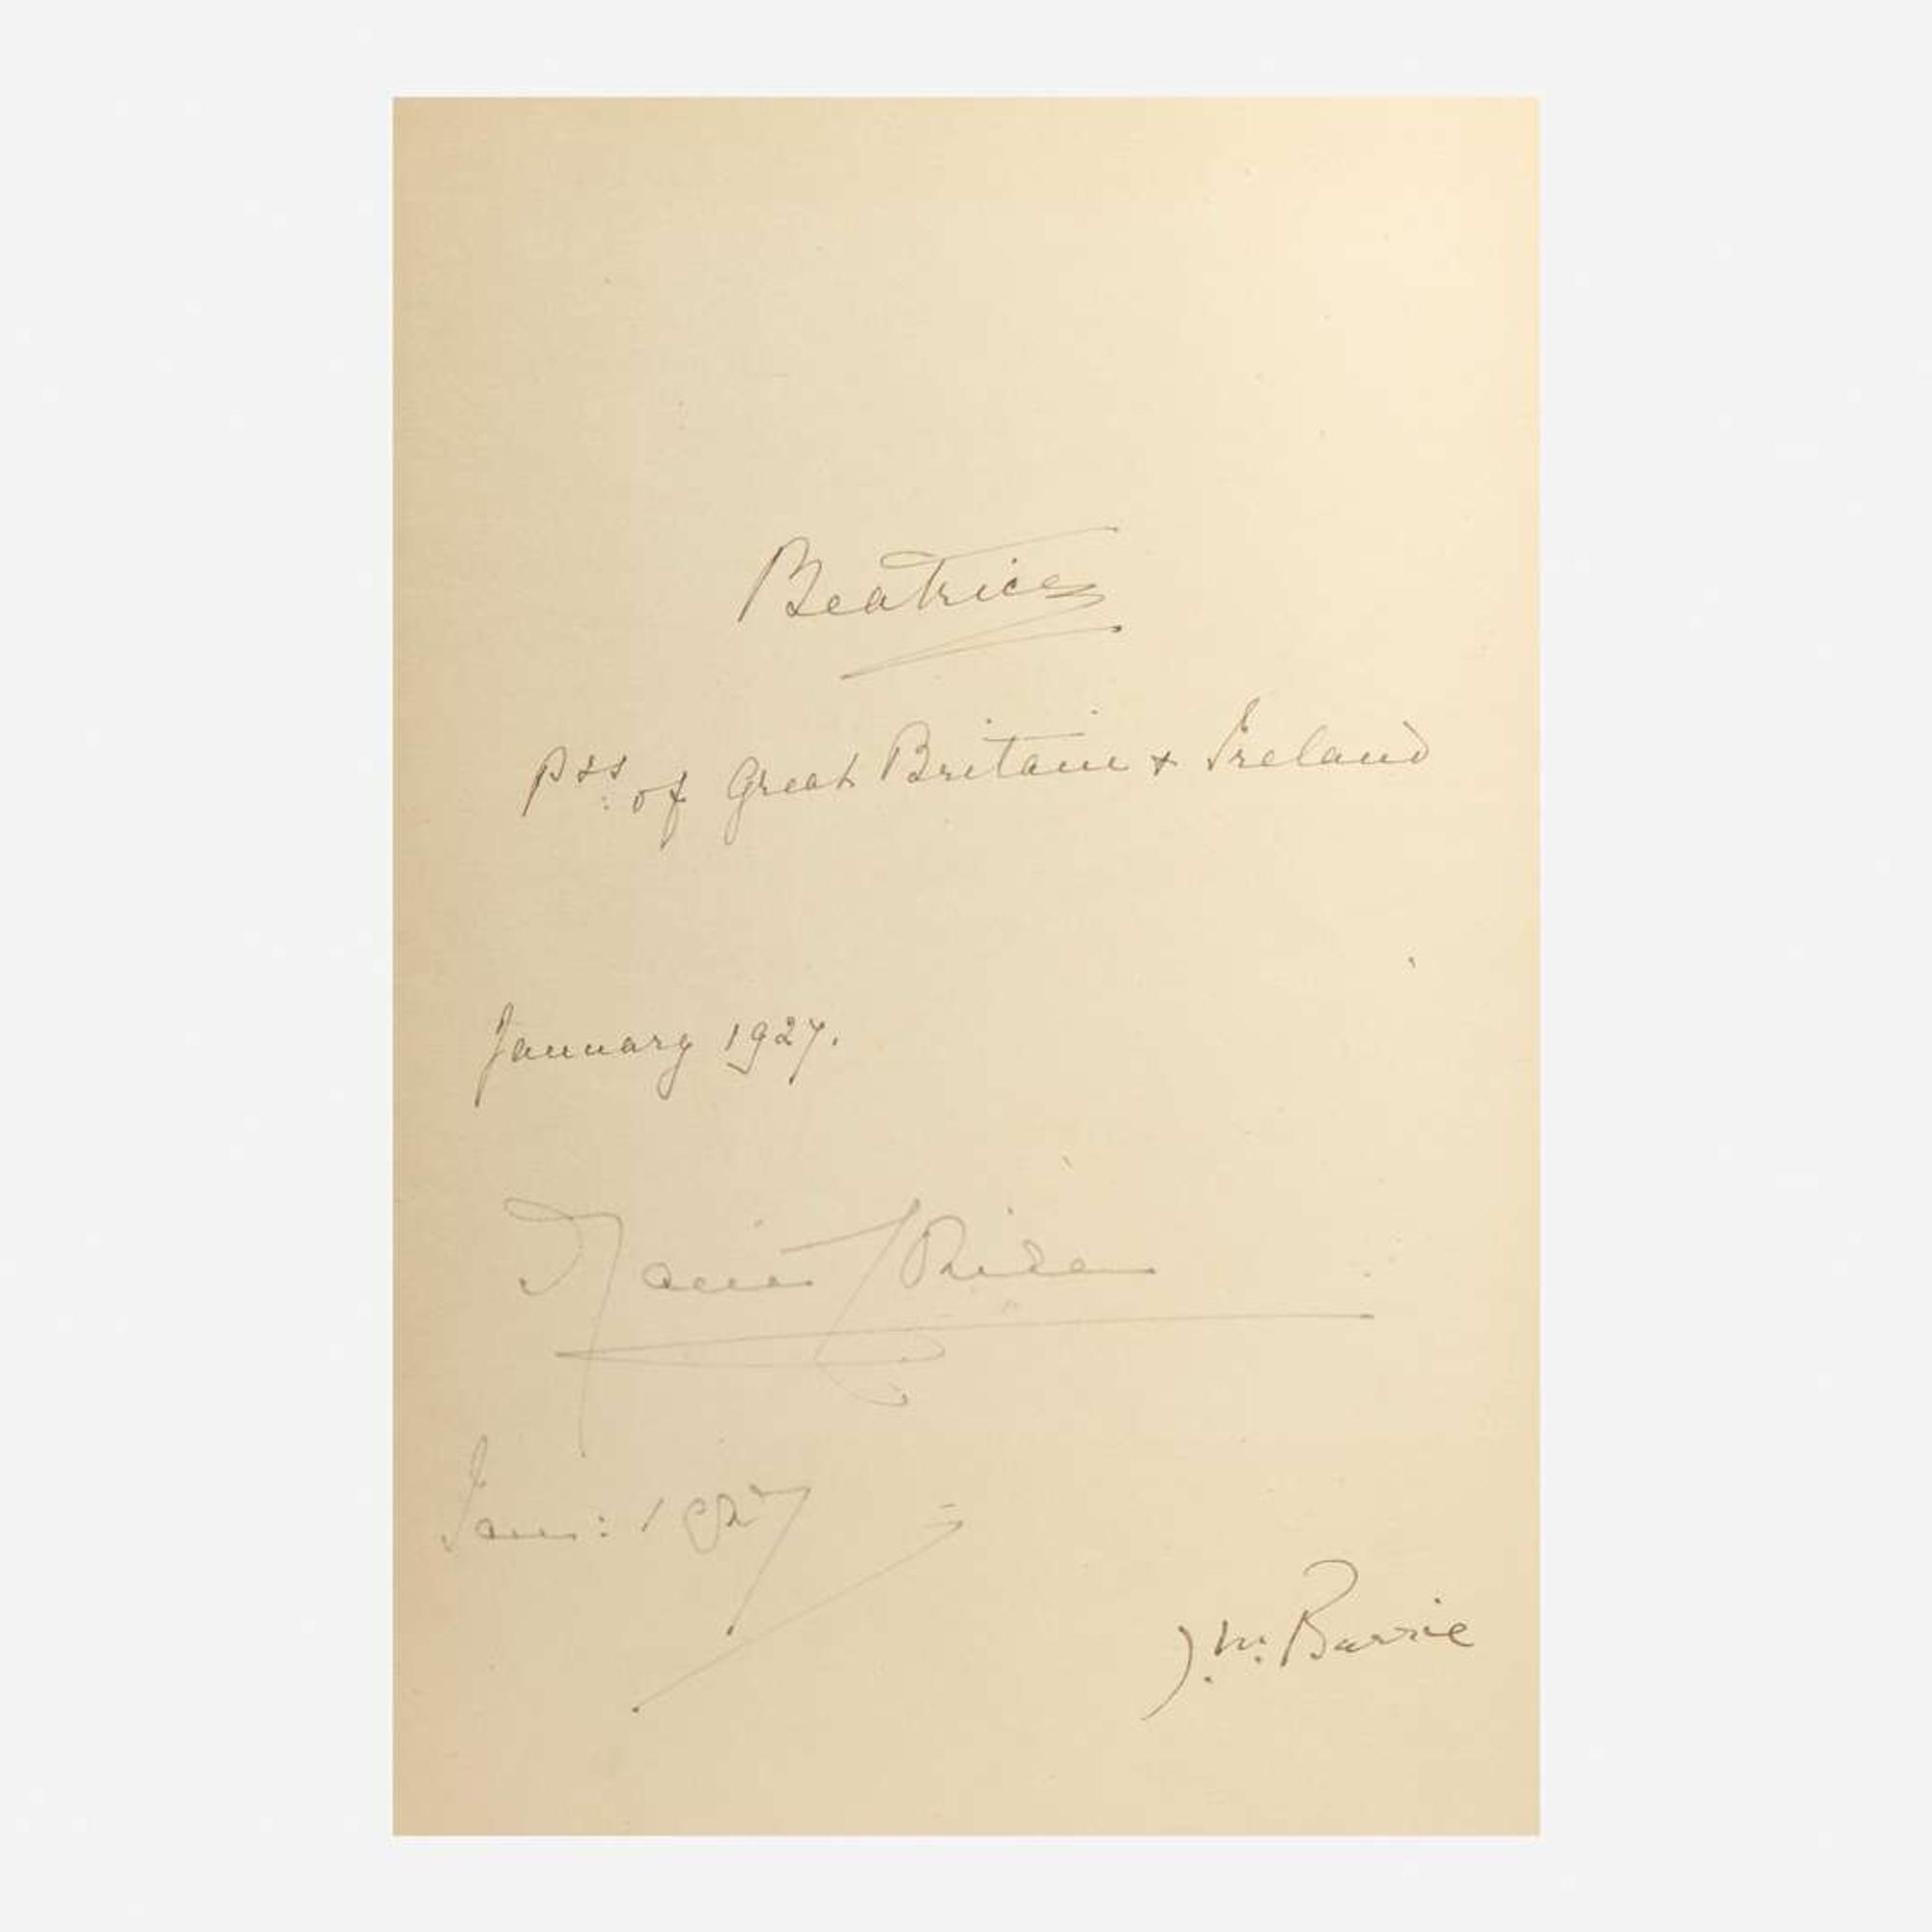 Beatrice
Pss: of Great Britain & Ireland
January 1927.
Jan: 1927
J. M. Barrie